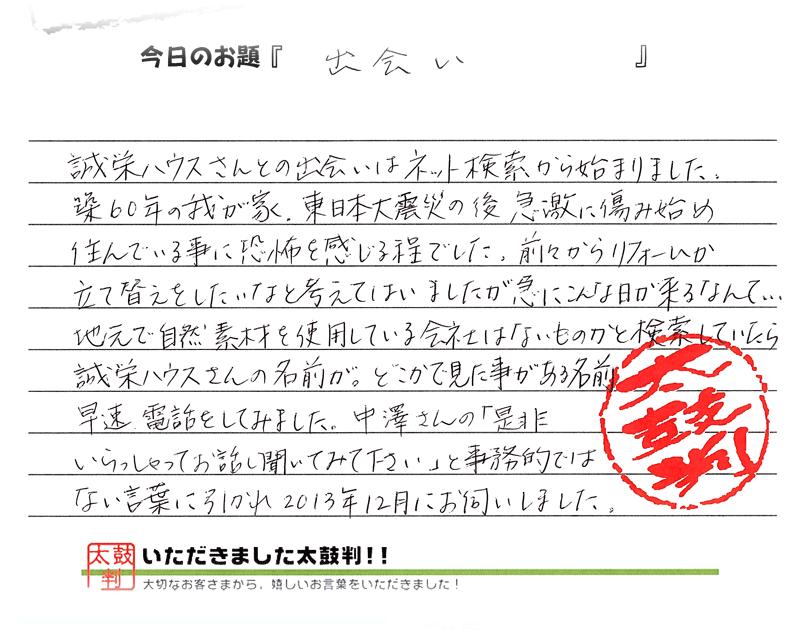 今日のお題『 出会い 』
誠栄ハウスさんとの出会いはネット検索から始まりました。
築60年の我が家、東日本大震災の後 急激に傷み始め
住んでいる事に恐怖を感じる程でした。前々からリフォームか
立て替えをしたいなと考えてはいましたが急にこんな日が来るなんて…
地元で自然素材を使用している会社はないものかと検索していたら
誠栄ハウスさんの名前が。どこかで見た事がある名前
早速、電話をしてみました。中澤さんの「是非
いらっしゃってお話し聞いてみて下さい」と事務的では
ない言葉に引かれ2013年12月にお伺いしました。
太鼓判
太鼓判
いただきました太鼓判!!
大切なお客さまから、嬉しいお言葉をいただきました!